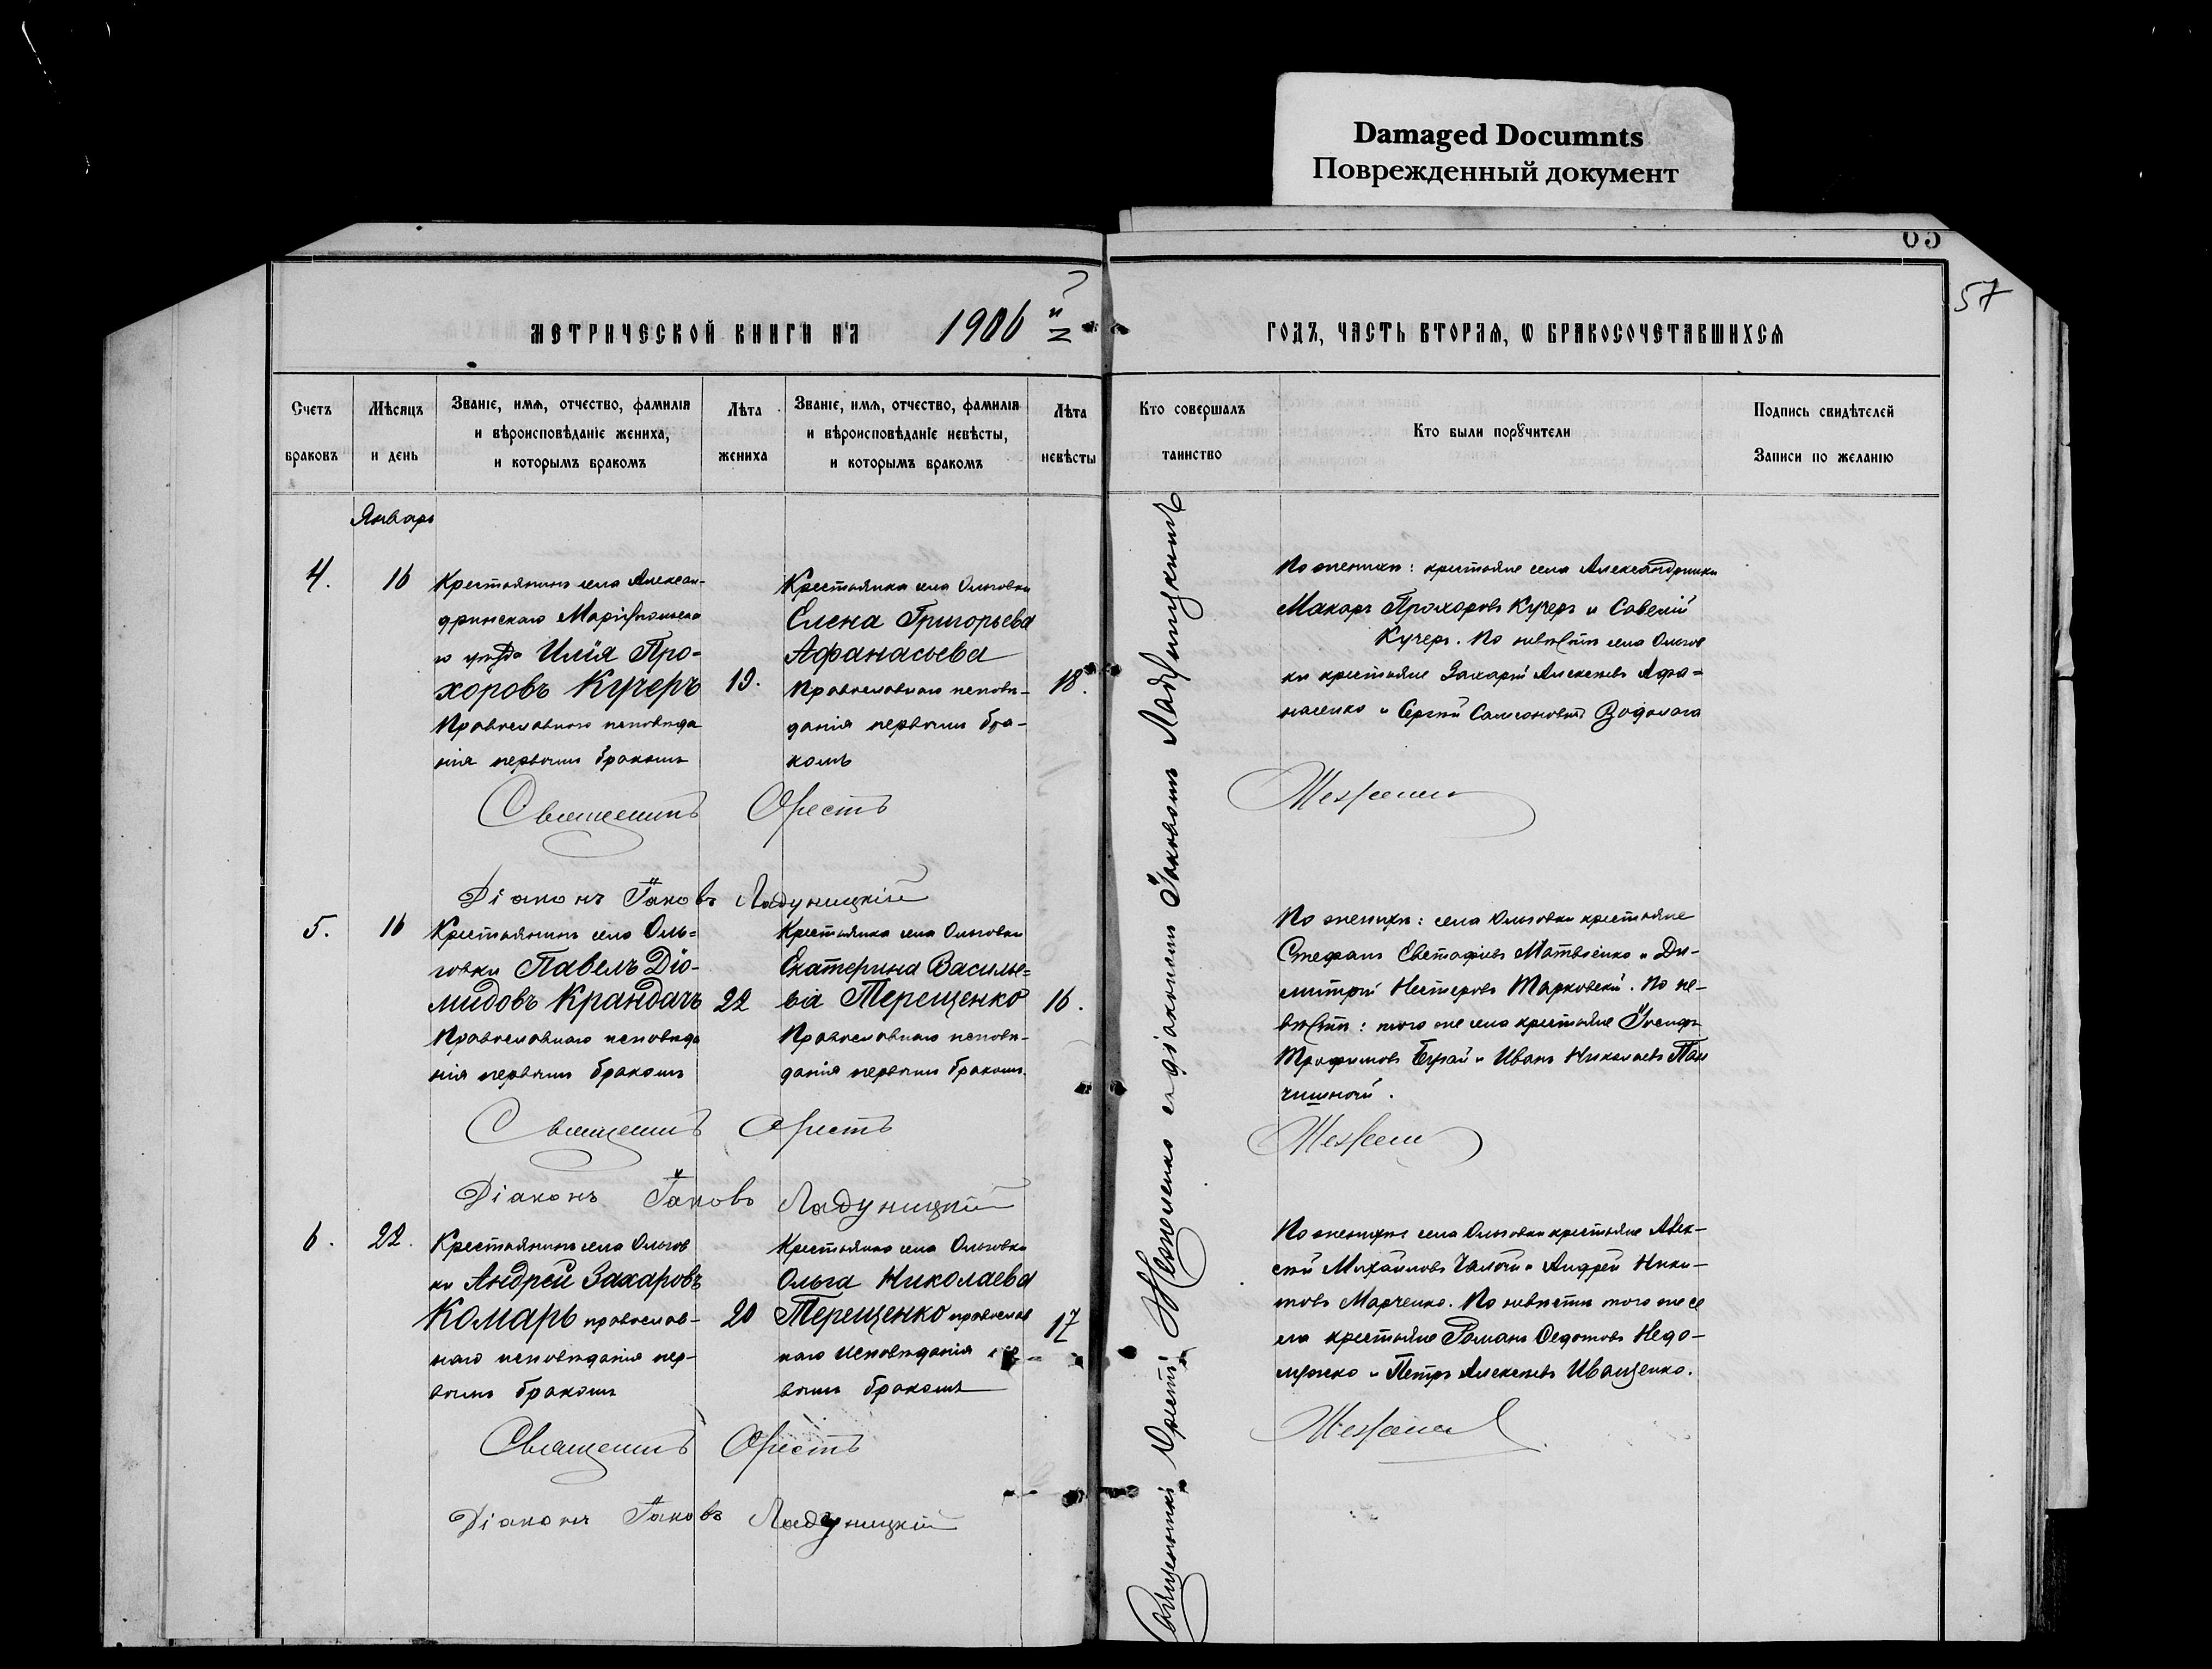 Damaged Documnts
Поврежденный документ
65
57
МЕТРИЧЕСКОЙ КНИГИ НА 1906 й
ГОДЪ, ЧАСТЬ ВТОРАЯ, Ѡ БРАКОСОЧЕТАВШИХСЯ
Счетъ
браковъ
Мѣсяцъ
и день
Званіе, имя, отчество, фамилія
и вѣроисповѣданіе жениха,
и которымъ бракомъ
Лѣта
жениха
Званіе, имя, отчество, фамилія
и вѣроисповѣданіе невѣсты,
и которымъ бракомъ
Лѣта
невѣсты
Кто совершалъ
таинство
Кто были порꙋчители
Подпись свидѣтелей
Записи по желанію
Январь
4.
16
Крестьянинъ села Алексан-
дринскаго
уѣзда Илія Про-
хоровъ Кучеръ
Православнаго исповѣда
нія первымъ бракомъ
19.
Крестьянка села Ольговки
Елена Григорьева
Афанасьева
Православнаго исповѣ-
данія первымъ бра-
комъ
18.
По женихѣ: крестьяне села
Макаръ Прохоровъ Кучеръ и Савелій
Кучеръ. По невѣстѣ села Ольгов
ки крестьяне Захарій Алексѣевъ Афа=
насенко и Сергѣй Водолага
Священникъ Орестъ
Діаконъ Іаковъ Ладуницкій
5.
16
Крестьянинъ села Оль=
говки Павелъ Діо-
мидовъ Крандачъ
Православнаго исповѣда
нія первымъ бракомъ
22
Крестьянка села Ольговки
Екатерина Василье=
ва Терещенко
Православнаго исповѣ-
данія первымъ бракомъ.
16.
По женихѣ: села Ольговки крестьяне
Стефанъ Матвіенко и Ди-
митрій Нестеровъ Тарковскій. По не-
вѣстѣ: того же села крестьяне Іосифъ
Трофимовъ и Иванъ Николаевъ
Священникъ Орестъ
Діаконъ Іаковъ Ладуницкій
6.
22.
Крестьянинъ села Ольгов
ки Андрей Захаровъ
Комарь православ-
наго исповѣданія пер-
вымъ бракомъ
20
Крестьянка села Ольговки
Ольга Николаева
Терещенко православ
наго исповѣданія
вымъ бракомъ
17
По женихѣ села Ольговки крестьяне Алек-
сѣй Михайловъ Чалый и Андрей Ники-
товъ Марченко. По невѣстѣ того же се
ла крестьяне Романъ Федотовъ Недо-
и Петръ Алексѣевъ Иващенко.
Священникъ Орестъ
Діаконъ Іаковъ Ладуницкій
Священникъ Орестъ съ діакономъ Іаковомъ Ладуницкимъ